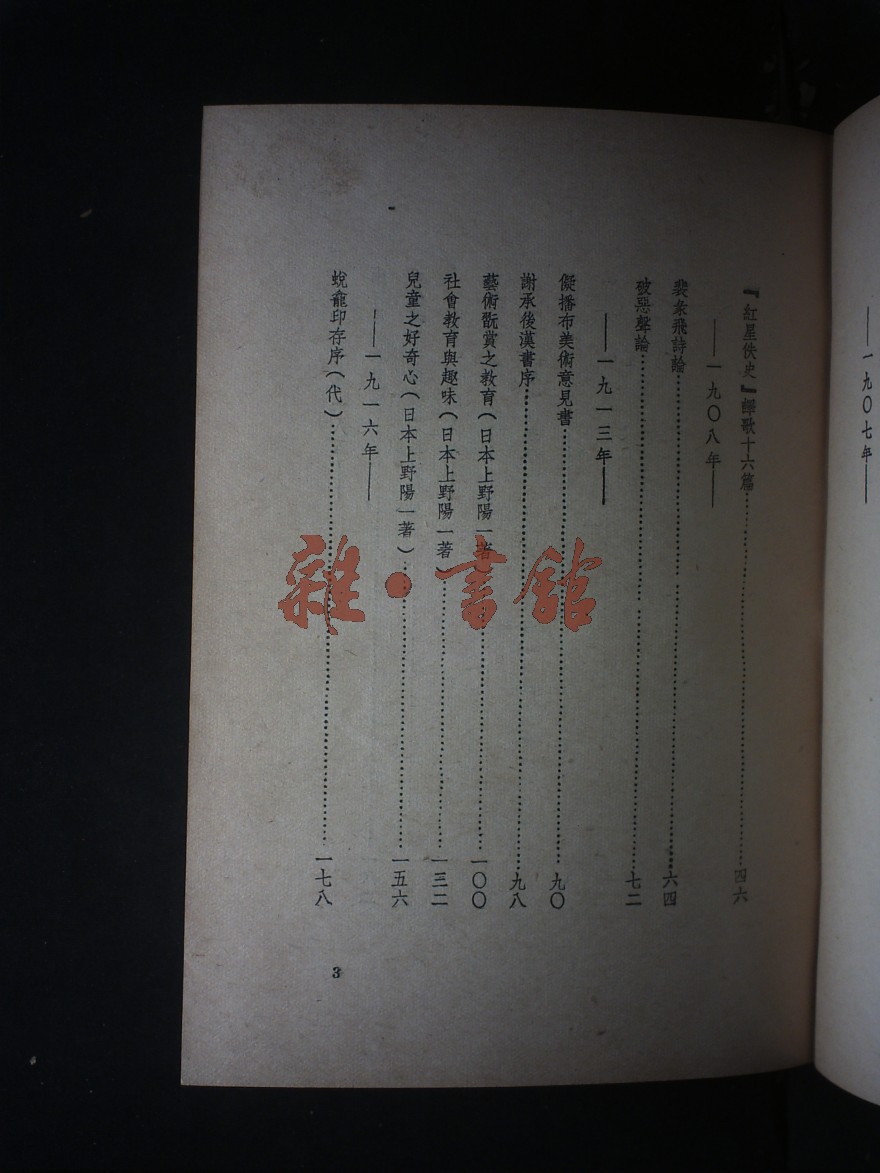 ——一九〇七年——
『紅星佚史』譯歌十六篇……四六
——一九〇八年——
裴彖飛詩論……六四
破惡聲論……七二
——一九一三年——
儗播布美術意見書……九〇
謝承後漢書序……九八
藝術翫賞之教育（日本上野陽一著）……一〇〇
社會教育與趣味（日本上野陽一著）……一三二
兒童之好奇心（日本上野陽一著）……一五六
——一九一六年——
蛻龕印存序（代）……一七八
3
雜·書館